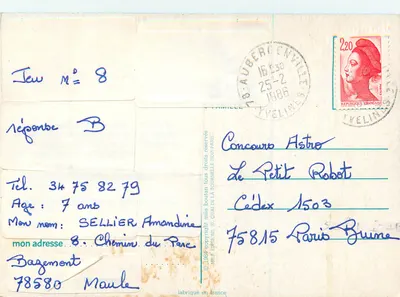 Jeu n° 8
réponse B
Tel. 34 75 82 79
Age : 7 ans
Mon nom : SELLIER Amandine
mon adresse 8. Chemin du Parc
Bazemont
78580 Maule
78-AUBERGENVILLE
16H30
25-2
1986
YVELINES
2,20
YVELINES
Concours Astro
Le Petit Robot
Cédex 1503
75815 Paris Brune